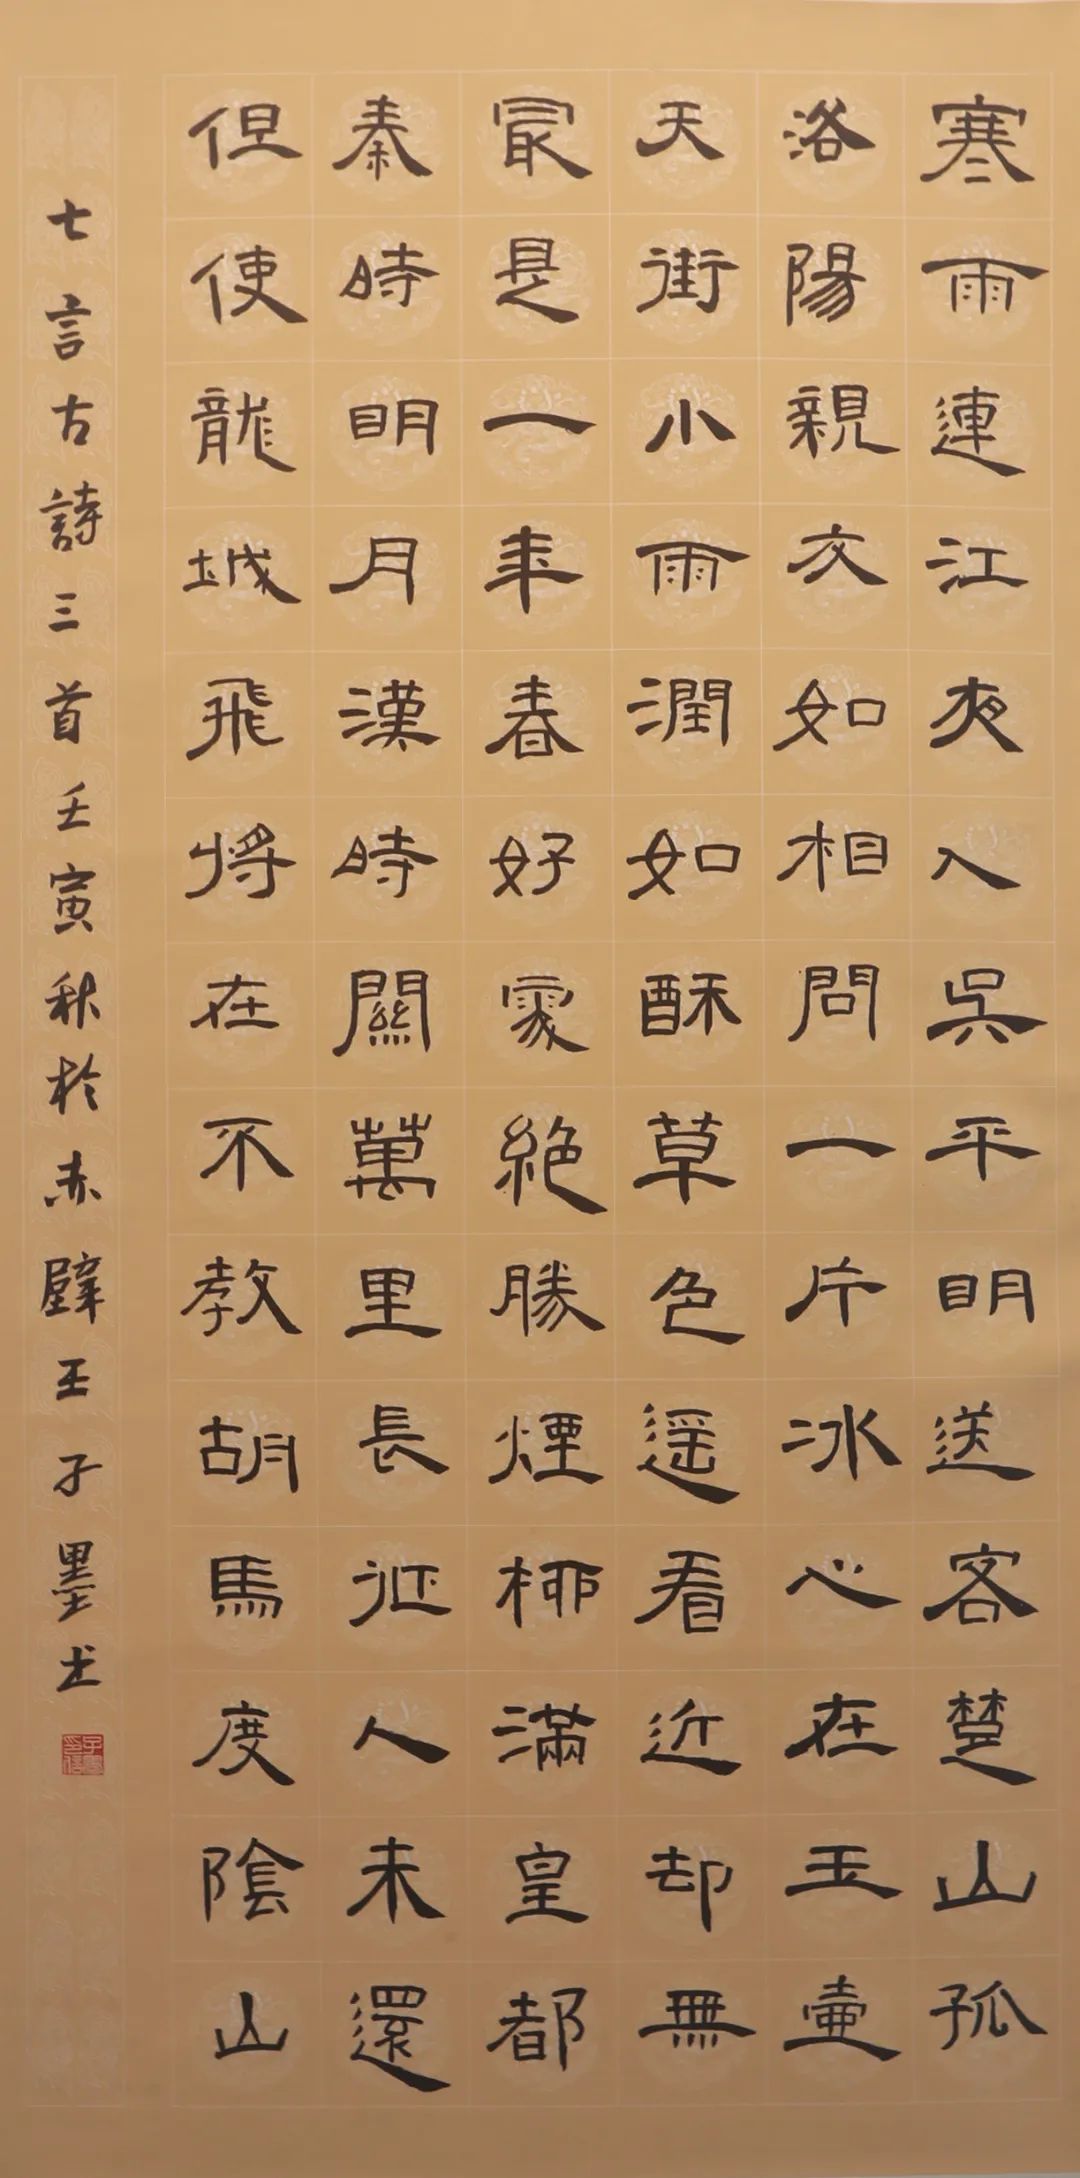 寒雨連江夜入吳平明送客楚山孤
洛陽親友如相問一片冰心在玉壺
天街小雨潤如酥草色遥看近却無
最是一年春好處絶勝煙柳滿皇都
秦時明月漢時關萬里長征人未還
但使龍城飛將在不教胡馬度陰山
七言古詩三首壬寅秋於赤壁王子墨书